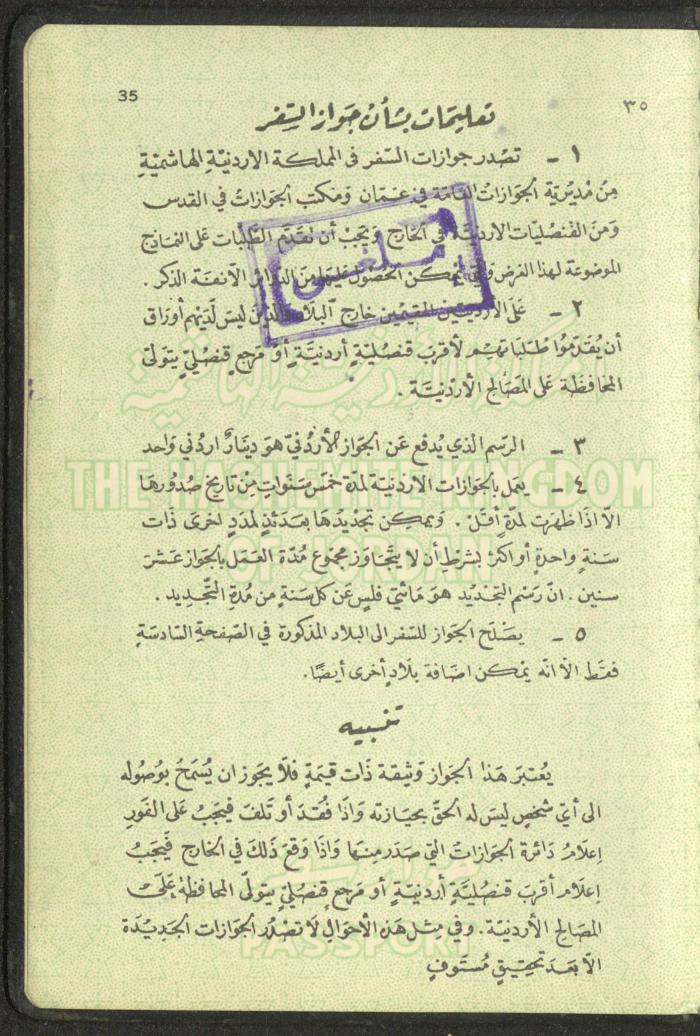 35 ٣٥
تعليمات بشأن جواز السفر
١ - تصدر جوازات السفر في المملكة الاردنية الهاشمية
من مديرية الجوازات العامة في عمان ومكتب الجوازات في القدس
ومن القنصليات الاردنية في الخارج ويجب أن تقدم الطلبات على النماذج
الموضوعة لهذا الغرض والتي يمكن الحصول عليها من الدوائر الآنفة الذكر .
ملغى
٢ - على الأردنيين المقيمين خارج البلاد والذين ليس لديهم أوراق
أن يقدموا طلباتهم لأقرب قنصلية أردنية أو مرجع قنصلي يتولى
المحافظة على المصالح الأردنية .
المملكة الأردنية الهاشمية
٣ - الرسم الذي يدفع عن الجواز الأردني هو دينار اردني واحد
THE HASHEMITE KINGDOM
٤ - يعمل بالجوازات الاردنية لمدة خمس سنوات من تاريخ صدورها
الا اذا ظهرت لمدة أقل . ويمكن تجديدها بعدئذ لمدد اخرى ذات
OF JORDAN
سنة واحدة أو اكثر بشرط أن لا يتجاوز مجموع مدة العمل بالجواز عشر
سنين . ان رسم التجديد هو مائتي فلس عن كل سنة من مدة التجديد .
٥ - يصلح الجواز للسفر الى البلاد المذكورة في الصفحة السادسة
فقط الا انه يمكن اضافة بلاد أخرى أيضا .
تنبيه
يعتبر هذا الجواز وثيقة ذات قيمة فلا يجوز ان يسمح بوصوله
الى أي شخص ليس له الحق بحيازته واذا فقد أو تلف فيجب على الفور
إعلام دائرة الجوازات التي صدر منها واذا وقع ذلك في الخارج فيجب
إعلام أقرب قنصلية أردنية أو مرجع قنصلي يتولى المحافظة على
المصالح الأردنية . وفي مثل هذه الاحوال لا تصدر الجوازات الجديدة
PASSPORT
الا بعد تحقيق مستوف